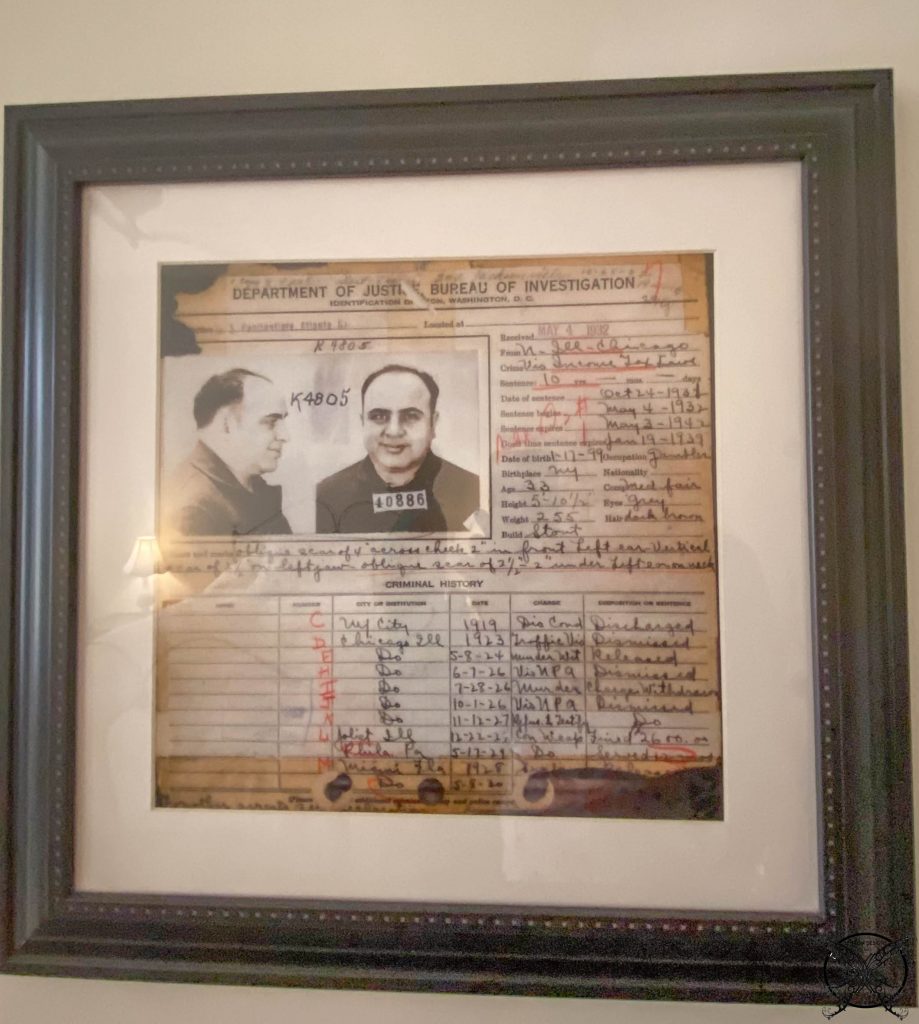 DEPARTMENT OF JUSTICE, BUREAU OF INVESTIGATION
IDENTIFICATION WASHINGTON, D. C.
Penitentiary Atlanta Located at
K 9805
K4805
40886
Received MAY 4 1932
From N. Ill-Chicago
Crime Vio Income Tax Laws
Sentence: 10 yrs. mos. days
Date of sentence Oct 24-1931
Sentence begins May 4-1932
Sentence expires May 3-1942
Good time sentence expires Jan 19-1939
Date of birth 1-17-99 Occupation Gambler
Birthplace NY Nationality
Age 33 Comp med fair
Height 5-10½ Eyes Grey
Weight 255 Hair dark brown
Build Stout
and marks oblique scar of 4" across cheek 2" in front left ear vertical
scar of 2½" on left jaw oblique scar of 2½"- 2" under left ear on neck
CRIMINAL HISTORY
NAME NUMBER CITY OR INSTITUTION DATE CHARGE DISPOSITION OR SENTENCE
C NY City 1919 Dis Cond Discharged
Chicago Ill 1923 Traffic Vio Dismissed
Do 5-8-24 Murder Wit Released
Do 6-7-26 Vio NPA Dismissed
Do 7-28-26 Murder Charge Withdrawn
Do 10-1-26 Vio NPA Dismissed
Do 11-12-27 Do
Joliet Ill Con Weap Fined 2600.00
Phila Pa Do Served
Miami Fla 1928
Do 5-8-30